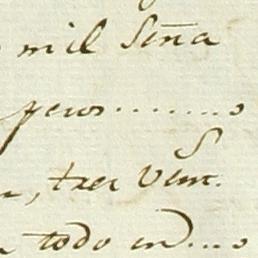 mil Seña
pesos..........
, tres Vent.
todo en).....